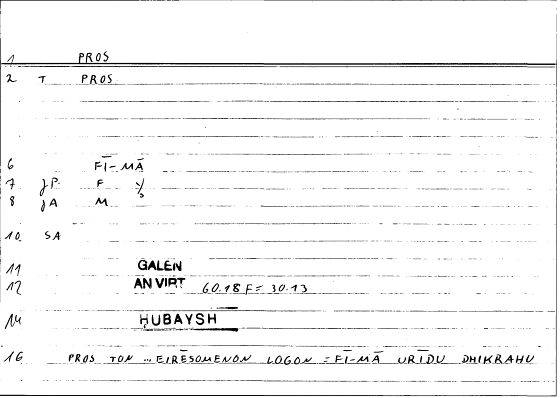 1 PROS
2 T PROS
6 FĪ-MĀ
7 JP F
8 JA M
10 SA
11 GALEN
12 AN VIRT 60.18 F = 30.13
14 ḤUBAYSH
16 PROS TON ... EIRĒSOMENON LOGON = FĪ-MĀ URĪDU DHIKRAHU